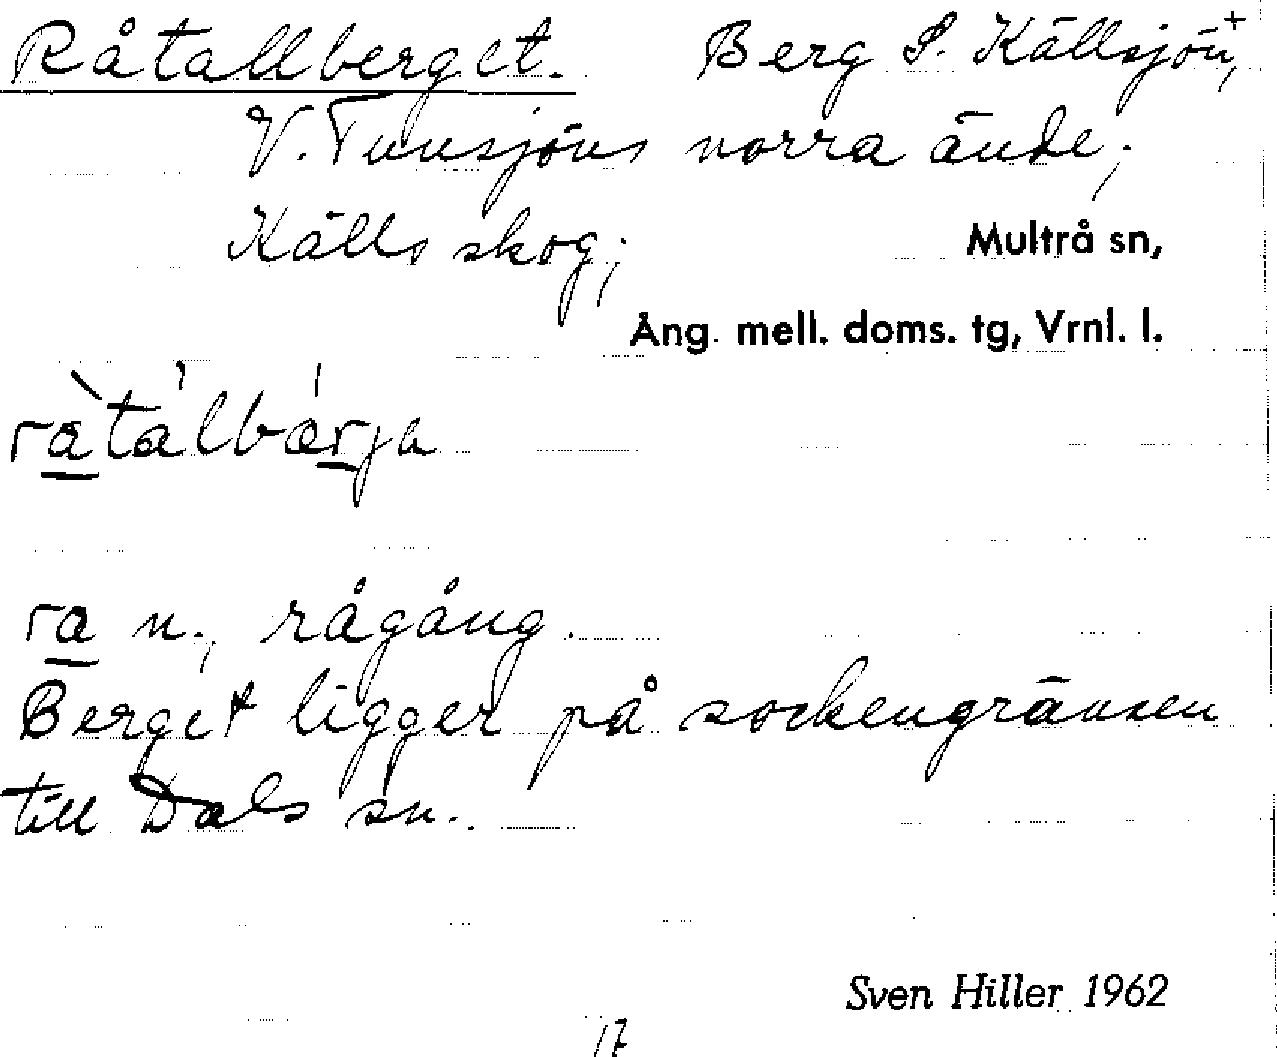 Råtallberget. Berg S. Källsjön,+
V. Tunsjöns norra ände;
Källs skog; Multrå sn,
Ång. mell. doms. tg, Vrnl. l.
ràtálbǽrja
ra n., rågång.
Berget ligger på sockengränsen
till Dals sn.
Sven Hiller 1962
17